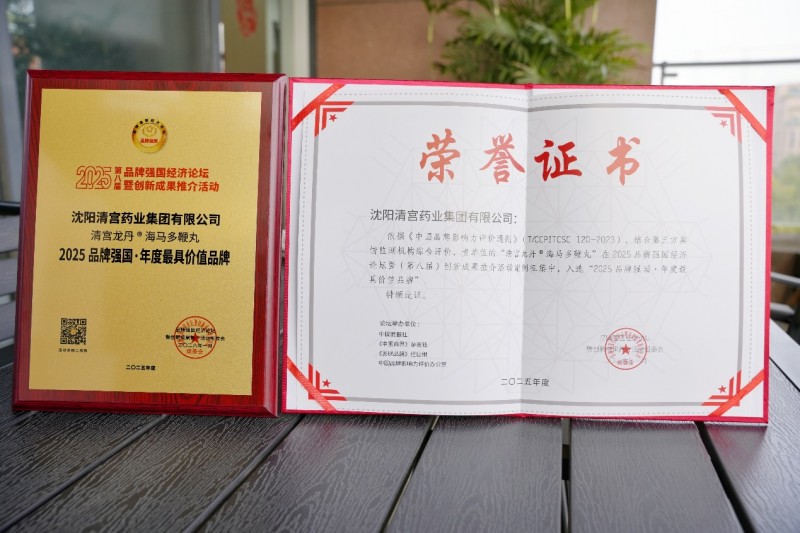 品牌强国
2025
第八届
品牌强国经济论坛
暨创新成果推介活动
沈阳清宫药业集团有限公司
清宫龙丹®海马多鞭丸
2025 品牌强国·年度最具价值品牌
二〇二五年度
荣誉证书
沈阳清宫药业集团有限公司：
依据《中国品牌影响力评价通则》（T/CCPITCSC 120-2023），结合第三方舆
情监测机构综合评价，贵单位的“清宫龙丹®海马多鞭丸”在2025品牌强国经济
论坛暨（第八届）创新成果推介活动案例征集中，入选“2025品牌强国·年度最
具价值品牌”。
特颁此证。
论坛举办单位：
《中国商界》杂志社
中国品牌影响力评价办公室
二〇二五年度